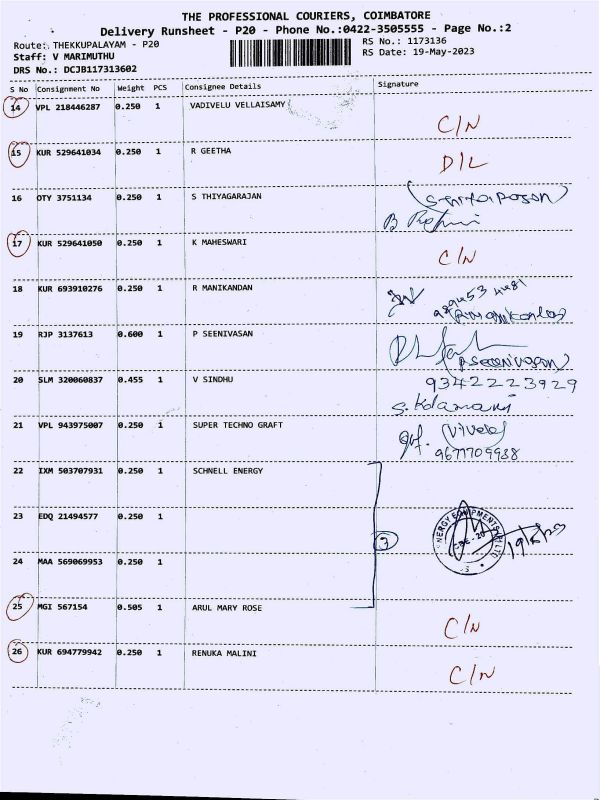 THE PROFESSIONAL COURIERS, COIMBATORE
Delivery Runsheet - P20 - Phone No.:0422-3505555 - Page No.:2
Route: THEKKUPALAYAM - P20
RS No.: 1173136
Staff: V MARIMUTHU
RS Date: 19-May-2023
DRS No.: DCJB117313602
S No Consignment No Weight PCS Consignee Details Signature
14 VPL 218446287 0.250 1 VADIVELU VELLAISAMY
C/N
15 KUR 529641034 0.250 1 R GEETHA
D/L
16 OTY 3751134 0.250 1 S THIYAGARAJAN
17 KUR 529641050 0.250 1 K MAHESWARI
C/N
18 KUR 693910276 0.250 1 R MANIKANDAN
19 RJP 3137613 0.600 1 P SEENIVASAN
P.Seenivasan
20 SLM 320060837 0.455 1 V SINDHU
9342223929
21 VPL 943975007 0.250 1 SUPER TECHNO GRAFT
9677709938
22 IXM 503707931 0.250 1 SCHNELL ENERGY
23 EDQ 21494577 0.250 1
3
24 MAA 569069953 0.250 1
25 MGI 567154 0.505 1 ARUL MARY ROSE
C/N
26 KUR 694779942 0.250 1 RENUKA MALINI
C/N